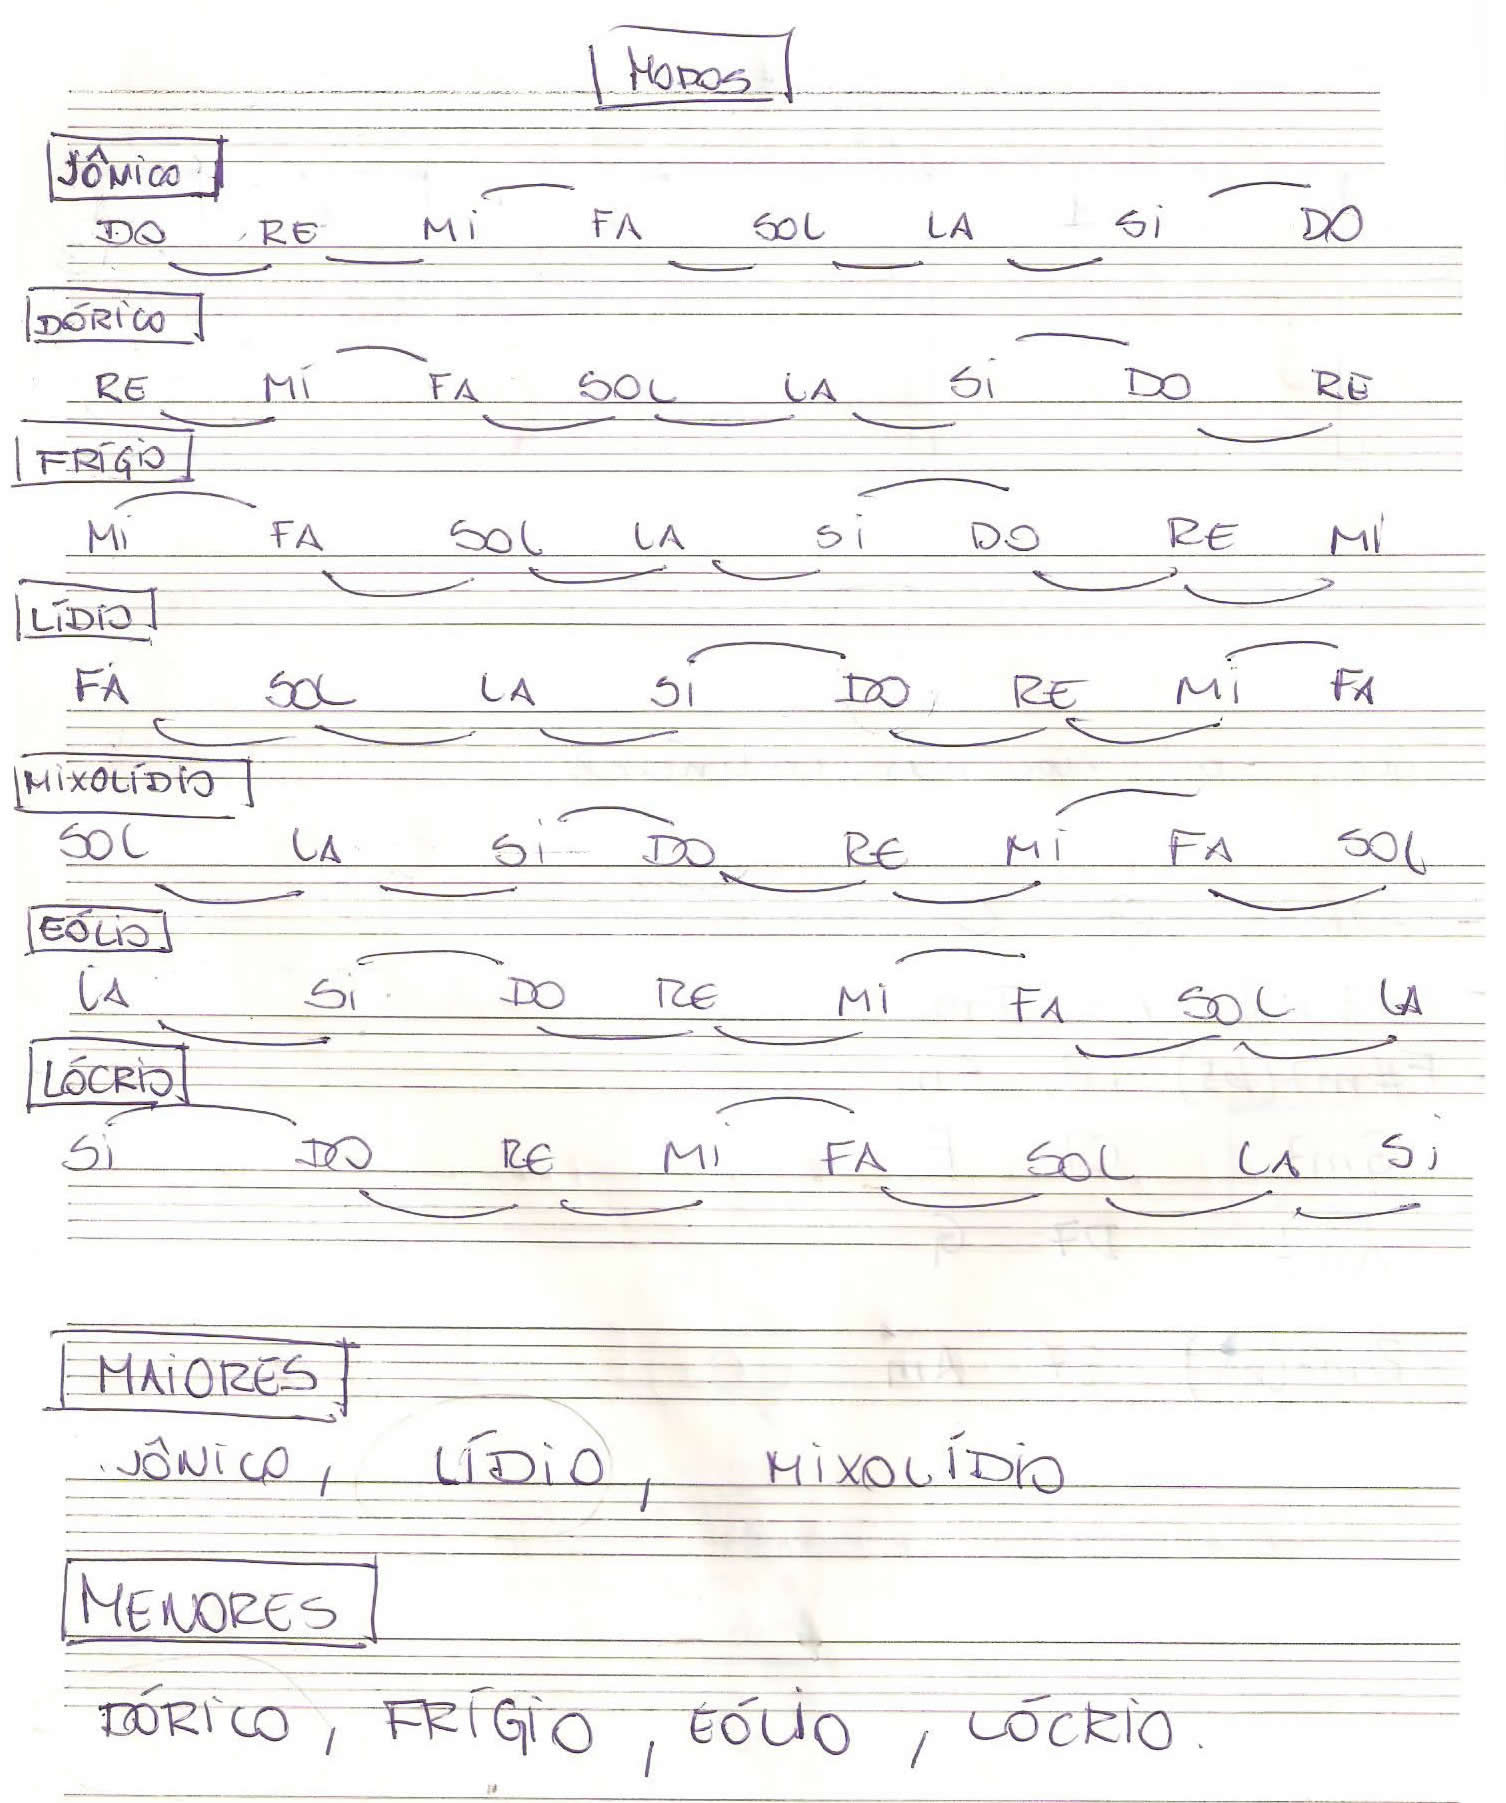 MODOS
JÔNICO
DO RE MI FA SOL LA SI DO
DÓRICO
RE MI FA SOL LA SI DO RE
FRÍGIO
MI FA SOL LA SI DO RE MI
LÍDIO
FA SOL LA SI DO RE MI FA
MIXOLÍDIO
SOL LA SI DO RE MI FA SOL
EÓLIO
LA SI DO RE MI FA SOL LA
LÓCRIO
SI DO RE MI FA SOL LA SI
MAIORES
JÔNICO, LÍDIO, MIXOLÍDIO
MENORES
DÓRICO, FRÍGIO, EÓLIO, LÓCRIO.